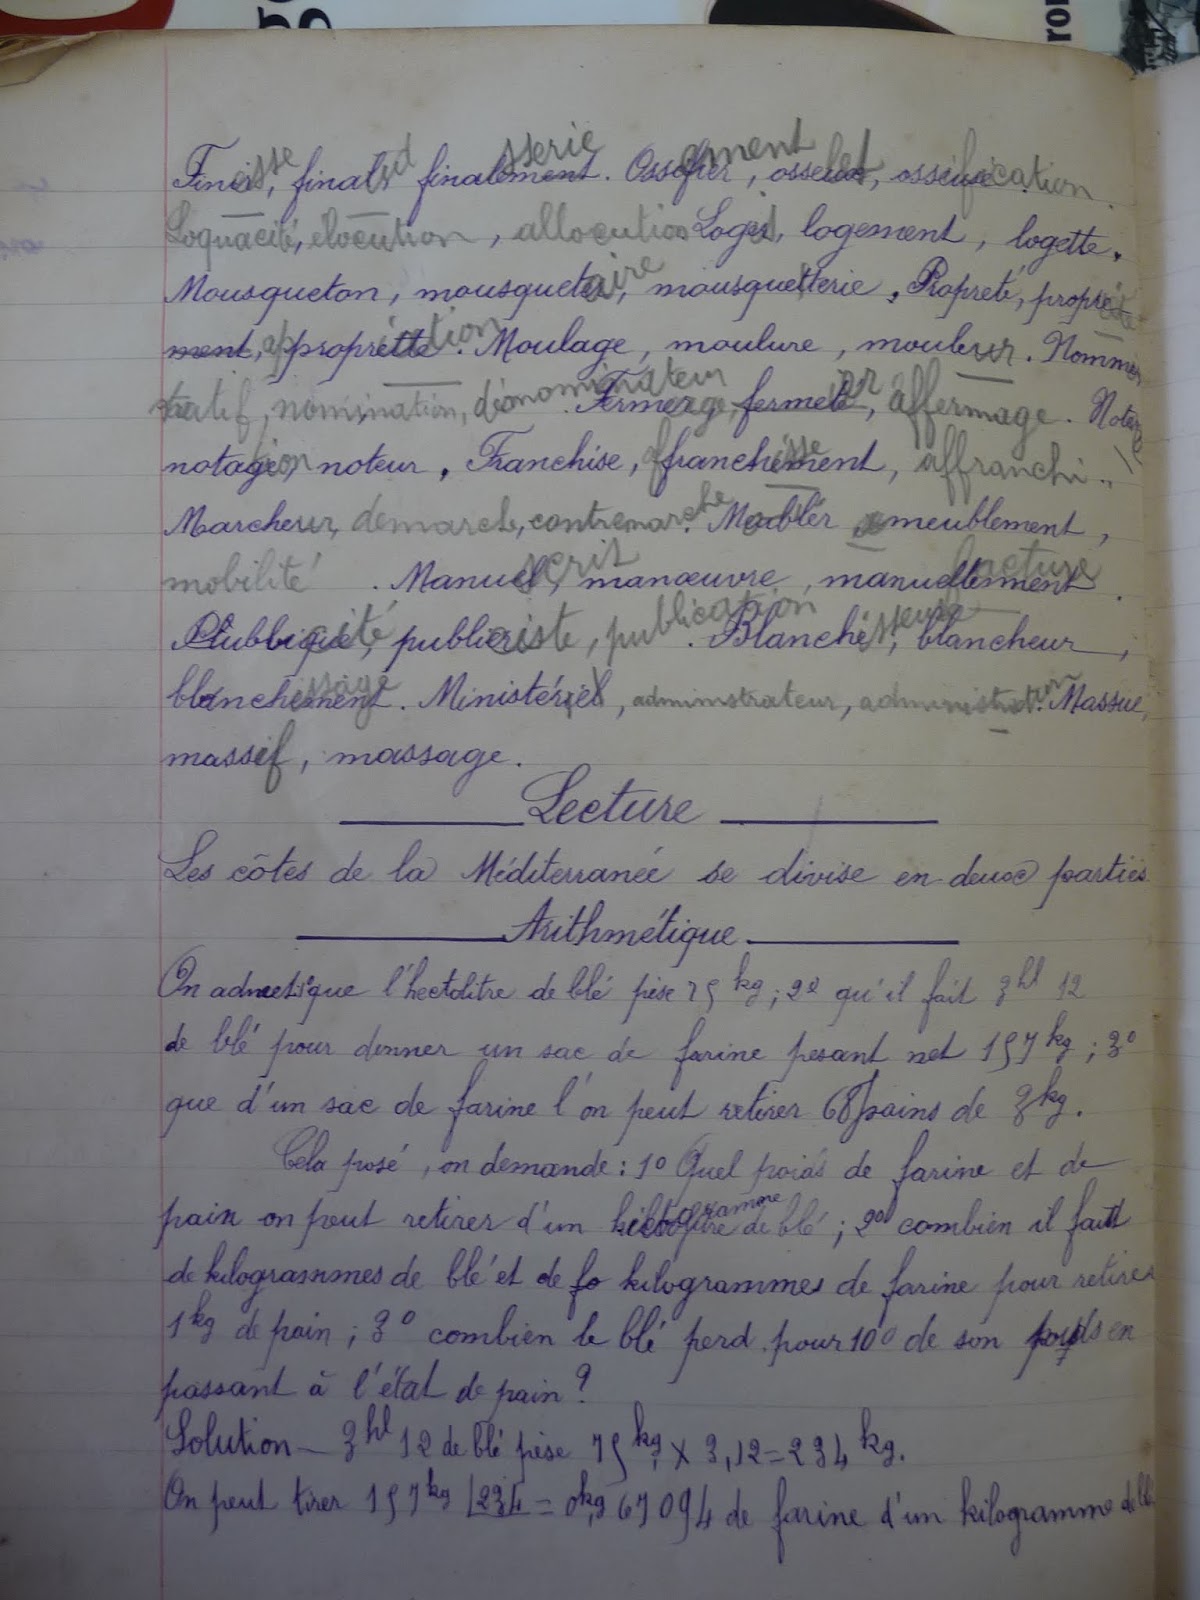 Finir, finals finalement. Ossifier, osselet, ossification.
Loquacité, élocution, allocution Loger, logement, logette.
Mousqueton, mousquetaire, mousqueterie. Propreté, propriété
ment, appropriation. Moulage, moulure, mouleur. Nommer
tatif, nomination, dénominateur. Fermage, fermeté, affermage. Noter
notage, noteur. Franchise, affranchissement, affranchi.
Marcheur, démarche, contremarche. Meubler, ameublement,
mobilité. Manuel, manœuvre, manuellement.
Publicité, publiciste, publication. Blanchisseuse, blancheur,
blanchissage. Ministériel, administrateur, administration. Massue,
massif, massage.
Lecture
Les côtes de la Méditerranée se divise en deux parties
Arithmétique
On admet 1° que l'hectolitre de blé pèse 75 kg ; 2° qu'il fait 3hl 12
de blé pour donner un sac de farine pesant net 157 kg ; 3°
que d'un sac de farine l'on peut retirer 68 pains de 3kg.
Cela posé, on demande : 1° Quel poids de farine et de
pain on peut retirer d'un kilogramme de blé ; 2° combien il faut
de kilogrammes de blé et de kilogrammes de farine pour retirer
1 kg de pain ; 3° combien le blé perd pour 100 de son poids en
passant à l'état de pain ?
Solution – 3hl 12 de blé pèse 75 kg × 3,12 = 234 kg.
On peut tirer 157kg |234 = 0kg,67094 de farine d'un kilogramme de blé